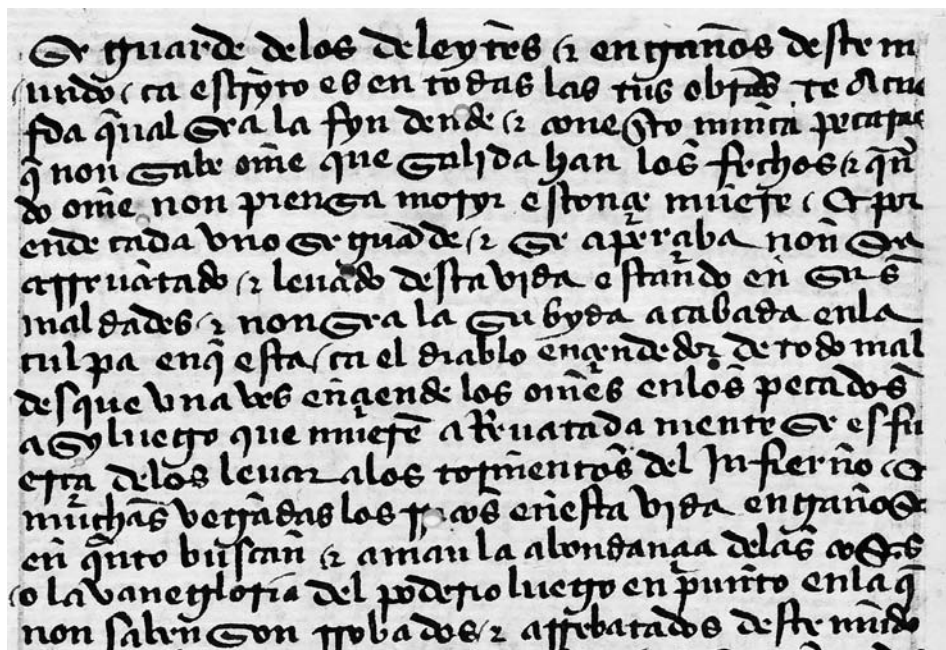 Se guarde delos deleytes & engaños deste m
undo ca escripto es en todas las tus obras te acue
rda qual sera la fyn dende & con esto nunca pecaras
q̃ non sabe ome que salida han los fechos & quã
do ome non piensa moryr estonçe muere & por
ende cada uno se guarde & se aperçaba non sea
arrevatado & levado desta vida estando en sus
maldades & non sea la su vyda acabada enla
culpa enq̃ esta ca el diablo ençendedor de todo mal
desque una ves ençiende los omes enlos pecados
asy luego que mueren a Revatada mente se esfu
erça delos levar alos tormentos del Infierno &
muchas vegadas los ricos enesta vida engañose
en quanto buscan & aman la abondançia delas cosas
o la vanegloria del poderio luego en punto enla q̃
non saben son rrobados & arrebatados deste mundo